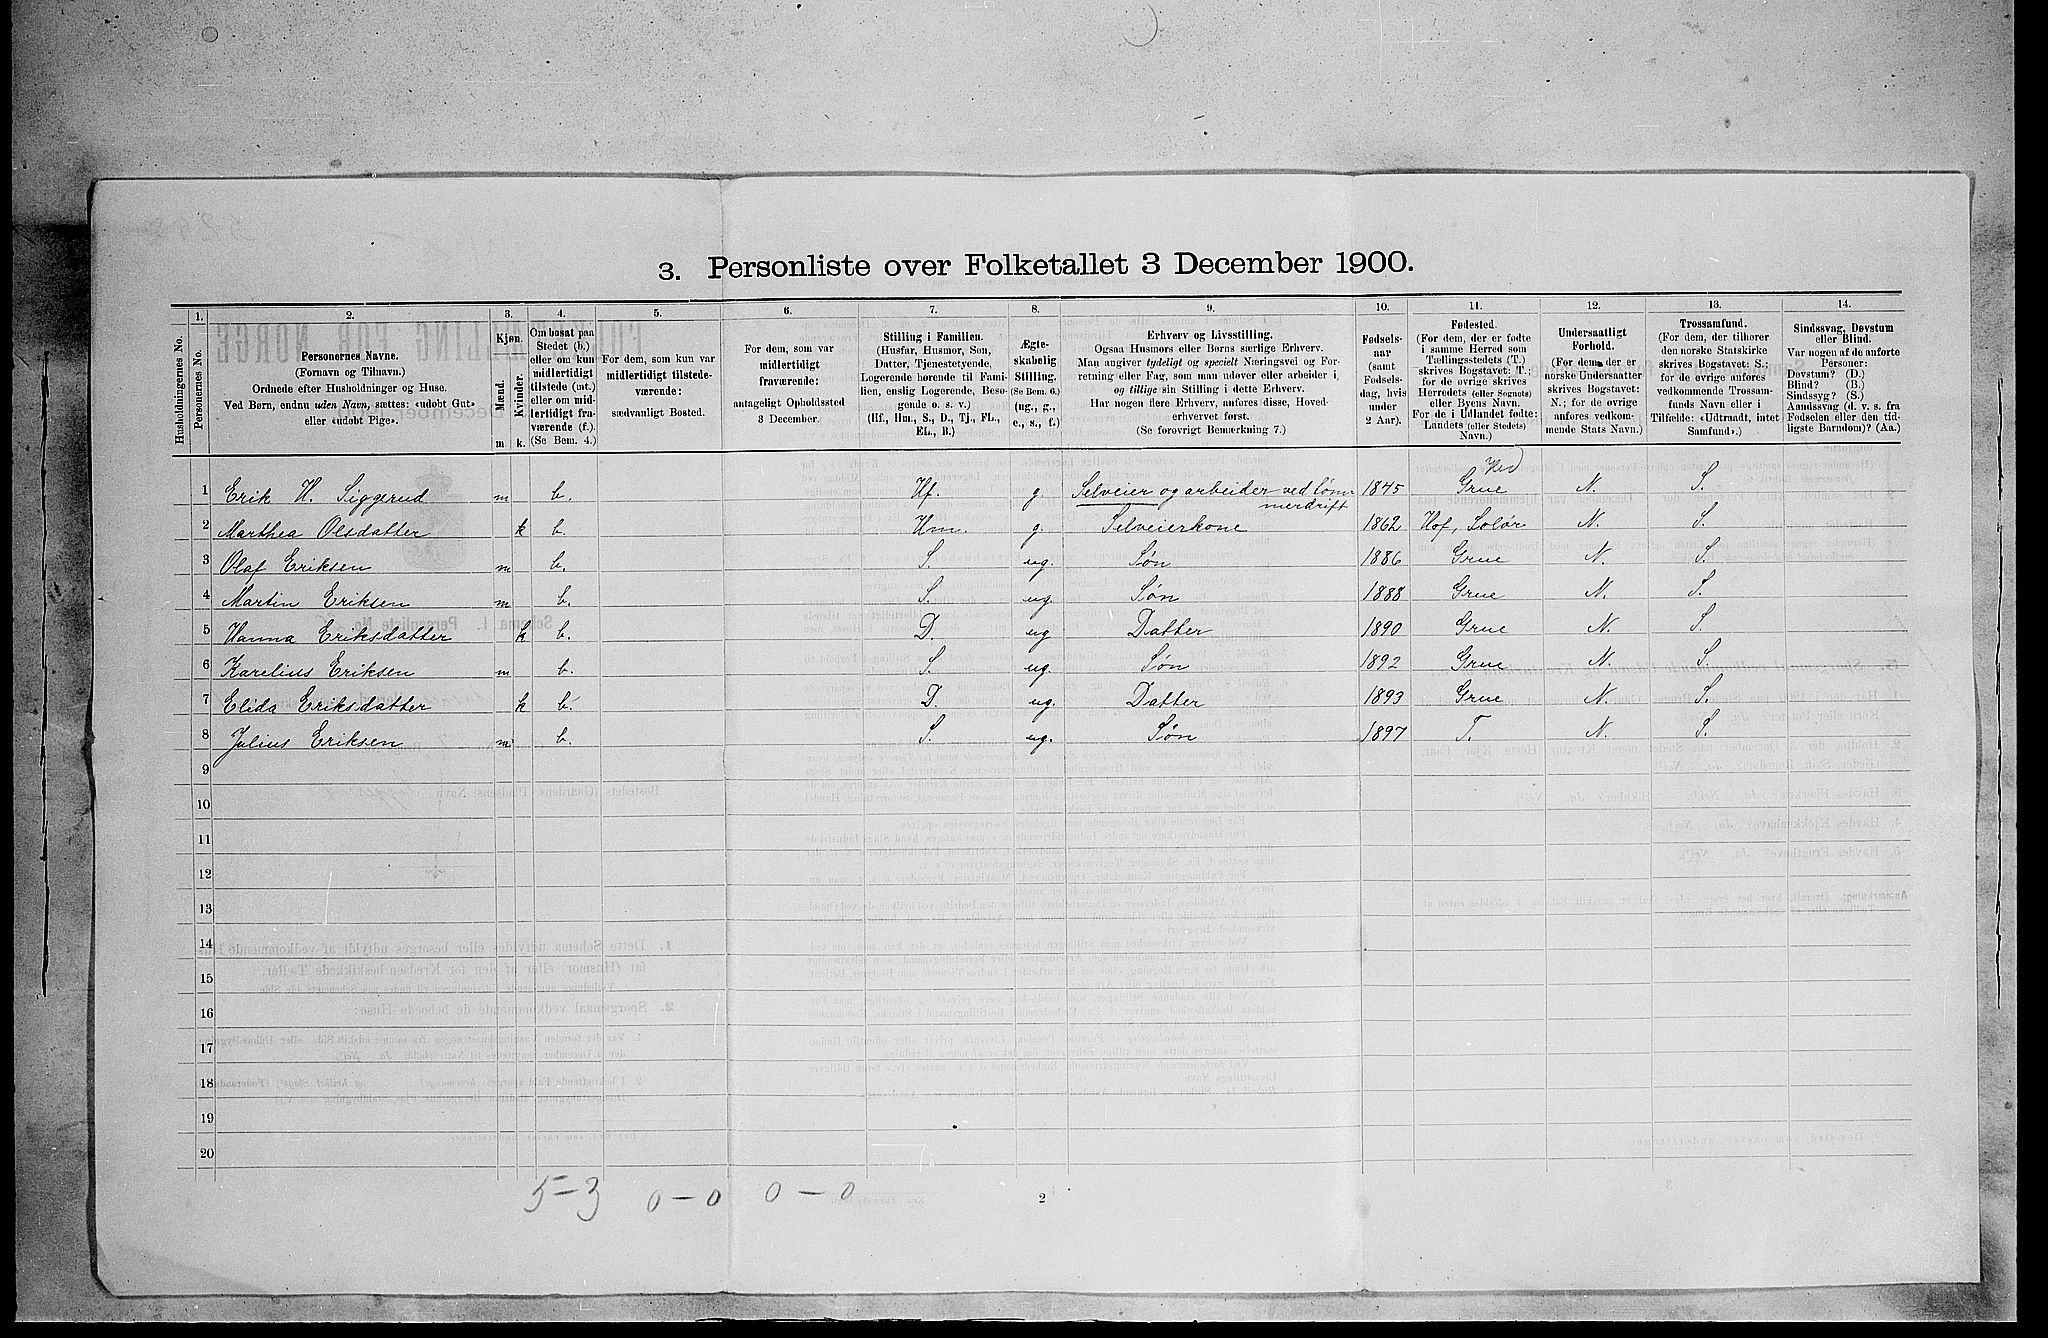 3. Personliste over Folketallet 3 December 1900.
1. 2. 3. 4. 5. 6. 7. 8. 9. 10. 11. 12. 13. 14.
Husholdningernes No.
Personernes No.
Personernes Navne.
(Fornavn og Tilnavn).
Ordnede efter Husholdninger og Huse.
Ved Børn, endnu uden Navn, sættes: «udøbt Gut»
eller «udøbt Pige».
Kjøn.
Mænd.
Kvinder.
m k.
Om bosat paa
Stedet (b.)
eller om kun
midlertidigt
tilstede (mt.)
eller om mid-
lertidigt fra-
værende (f.).
(Se Bem. 4.)
For dem, som kun var
midlertidigt tilstede-
værende:
sædvanligt Bosted.
For dem, som var
midlertidigt
fraværende:
antageligt Opholdssted
3 December.
Stilling i Familien.
(Husfar, Husmor, Søn,
Datter, Tjenestetyende,
Logerende hørende til Fami-
lien, enslig Logerende, Besø-
gende o. s. v.)
(Hf., Hm., S., D., Tj., FL.,
EL., B.)
Ægte-
skabelig
Stilling.
(Se Bem. 6.)
(ug., g.,
e., s., f.)
Erhverv og Livsstilling.
Ogsaa Husmors eller Børns særlige Erhverv.
Man angiver tydeligt og specielt Næringsvei og For-
retning eller Fag, som man udøver eller arbeider i,
og tillige sin Stilling i dette Erhverv.
Har nogen flere Erhverv, anføres disse, Hoved-
erhvervet først.
(Se forøvrigt Bemærkning 7.)
Fødsels-
aar
(samt
Fødsels-
dag, hvis
under
2 Aar).
Fødested.
(For dem, der er fødte
i samme Herred som
Tællingsstedets (T.)
skrives Bogstavet: T.;
for de øvrige skrives
Herredets (eller Sognets)
eller Byens Navn.
For de i Udlandet fødte:
Landets (eller Stedets)
Navn.)
Undersaatligt
Forhold.
(For dem, der er
norske Undersaatter
skrives Bogstavet:
N.; for de øvrige
anføres vedkom-
mende Stats Navn.)
Trossamfund.
(For dem, der tilhører
den norske Statskirke
skrives Bogstavet: S.;
for de øvrige anføres
vedkommende Trossam-
funds Navn eller i
Tilfælde: «Udtraadt, intet
Samfund».)
Sindssvag, Døvstum
eller Blind.
Var nogen af de anførte
Personer:
Døvstum? (D.)
Blind? (B.)
Sindssyg? (S.)
Aandssvag (d. v. s. fra
Fødselen eller den tid-
ligste Barndom)? (Aa.)
1 Erik H. Siggerud m b. Hf. g. Selveier og arbeider ved tøm- 1845 Grue N. S.
merdrift
2 Marthea Olsdatter k b. Hm. g. Selveierkone 1862 Hof, Solør N. S.
3 Olaf Eriksen m b. S. ug. Søn 1886 Grue N. S.
4 Martin Eriksen m b. S. ug. Søn 1888 Grue N. S.
5 Hanna Eriksdatter k b. D. ug Datter 1890 Grue N. S.
6 Karelius Eriksen m b. S. ug. Søn 1892 Grue N. S.
7 Elida Eriksdatter k b. D. ug. Datter 1893 Grue N. S.
8 Julius Eriksen m b. S. ug. Søn 1897 T. N. S.
9
10
11
12
13
14
15
16
17
18
19
20
5-3 0-0 0-0
2